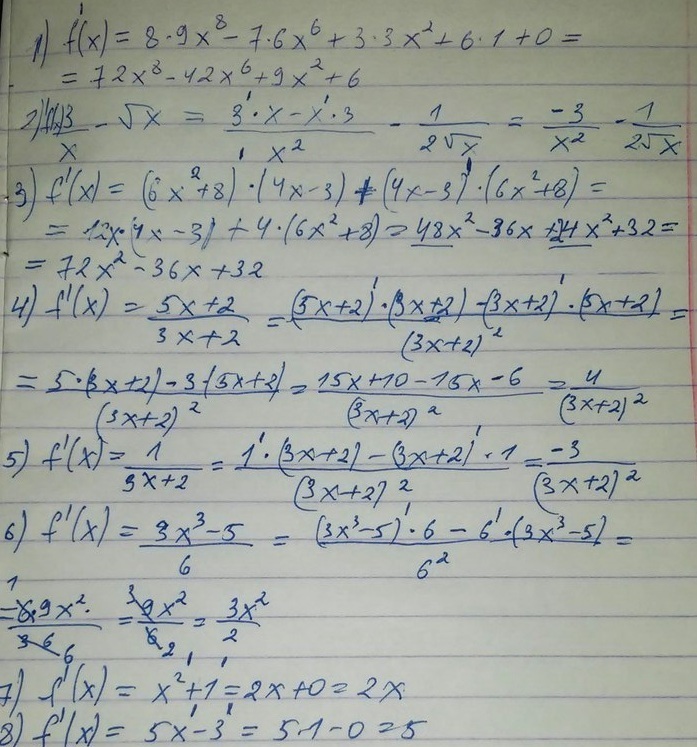 1) f'(x) = 8·9x⁸ - 7·6x⁶ + 3·3x² + 6·1 + 0 =
= 72x⁸ - 42x⁶ + 9x² + 6
2) f'(x) 3/x - √x = (3'·x - x'·3)/x² - 1/(2√x) = -3/x² - 1/(2√x)
3) f'(x) = (6x²+8)'·(4x-3) + (4x-3)'·(6x²+8) =
= 12x·(4x-3) + 4·(6x²+8) = 48x² - 36x + 24x² + 32 =
= 72x² - 36x + 32
4) f'(x) = (5x+2)/(3x+2) = ((5x+2)'·(3x+2) - (3x+2)'·(5x+2))/(3x+2)² =
= (5·(3x+2) - 3·(5x+2))/(3x+2)² = (15x+10-15x-6)/(3x+2)² = 4/(3x+2)²
5) f'(x) = 1/(3x+2) = (1'·(3x+2) - (3x+2)'·1)/(3x+2)² = -3/(3x+2)²
6) f'(x) = (3x³-5)/6 = ((3x³-5)'·6 - 6'·(3x³-5))/6² =
= (6·9x²)/36 = 9x²/6 = 3x²/2
7) f'(x) = x²' + 1' = 2x + 0 = 2x
8) f'(x) = 5x' - 3' = 5·1 - 0 = 5